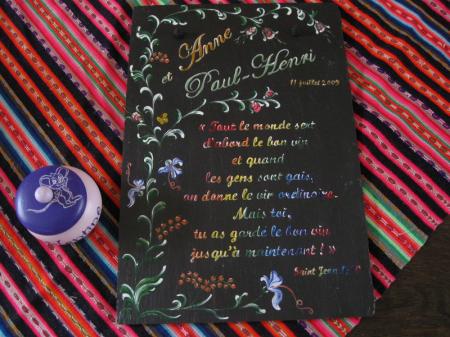 Anne
et
Paul-Henri
11 juillet 2009
« Tout le monde sert
d'abord le bon vin
et quand
les gens sont gais,
on donne le vin ordinaire.
Mais toi,
tu as gardé le bon vin
jusqu'à maintenant ! »
Saint Jean